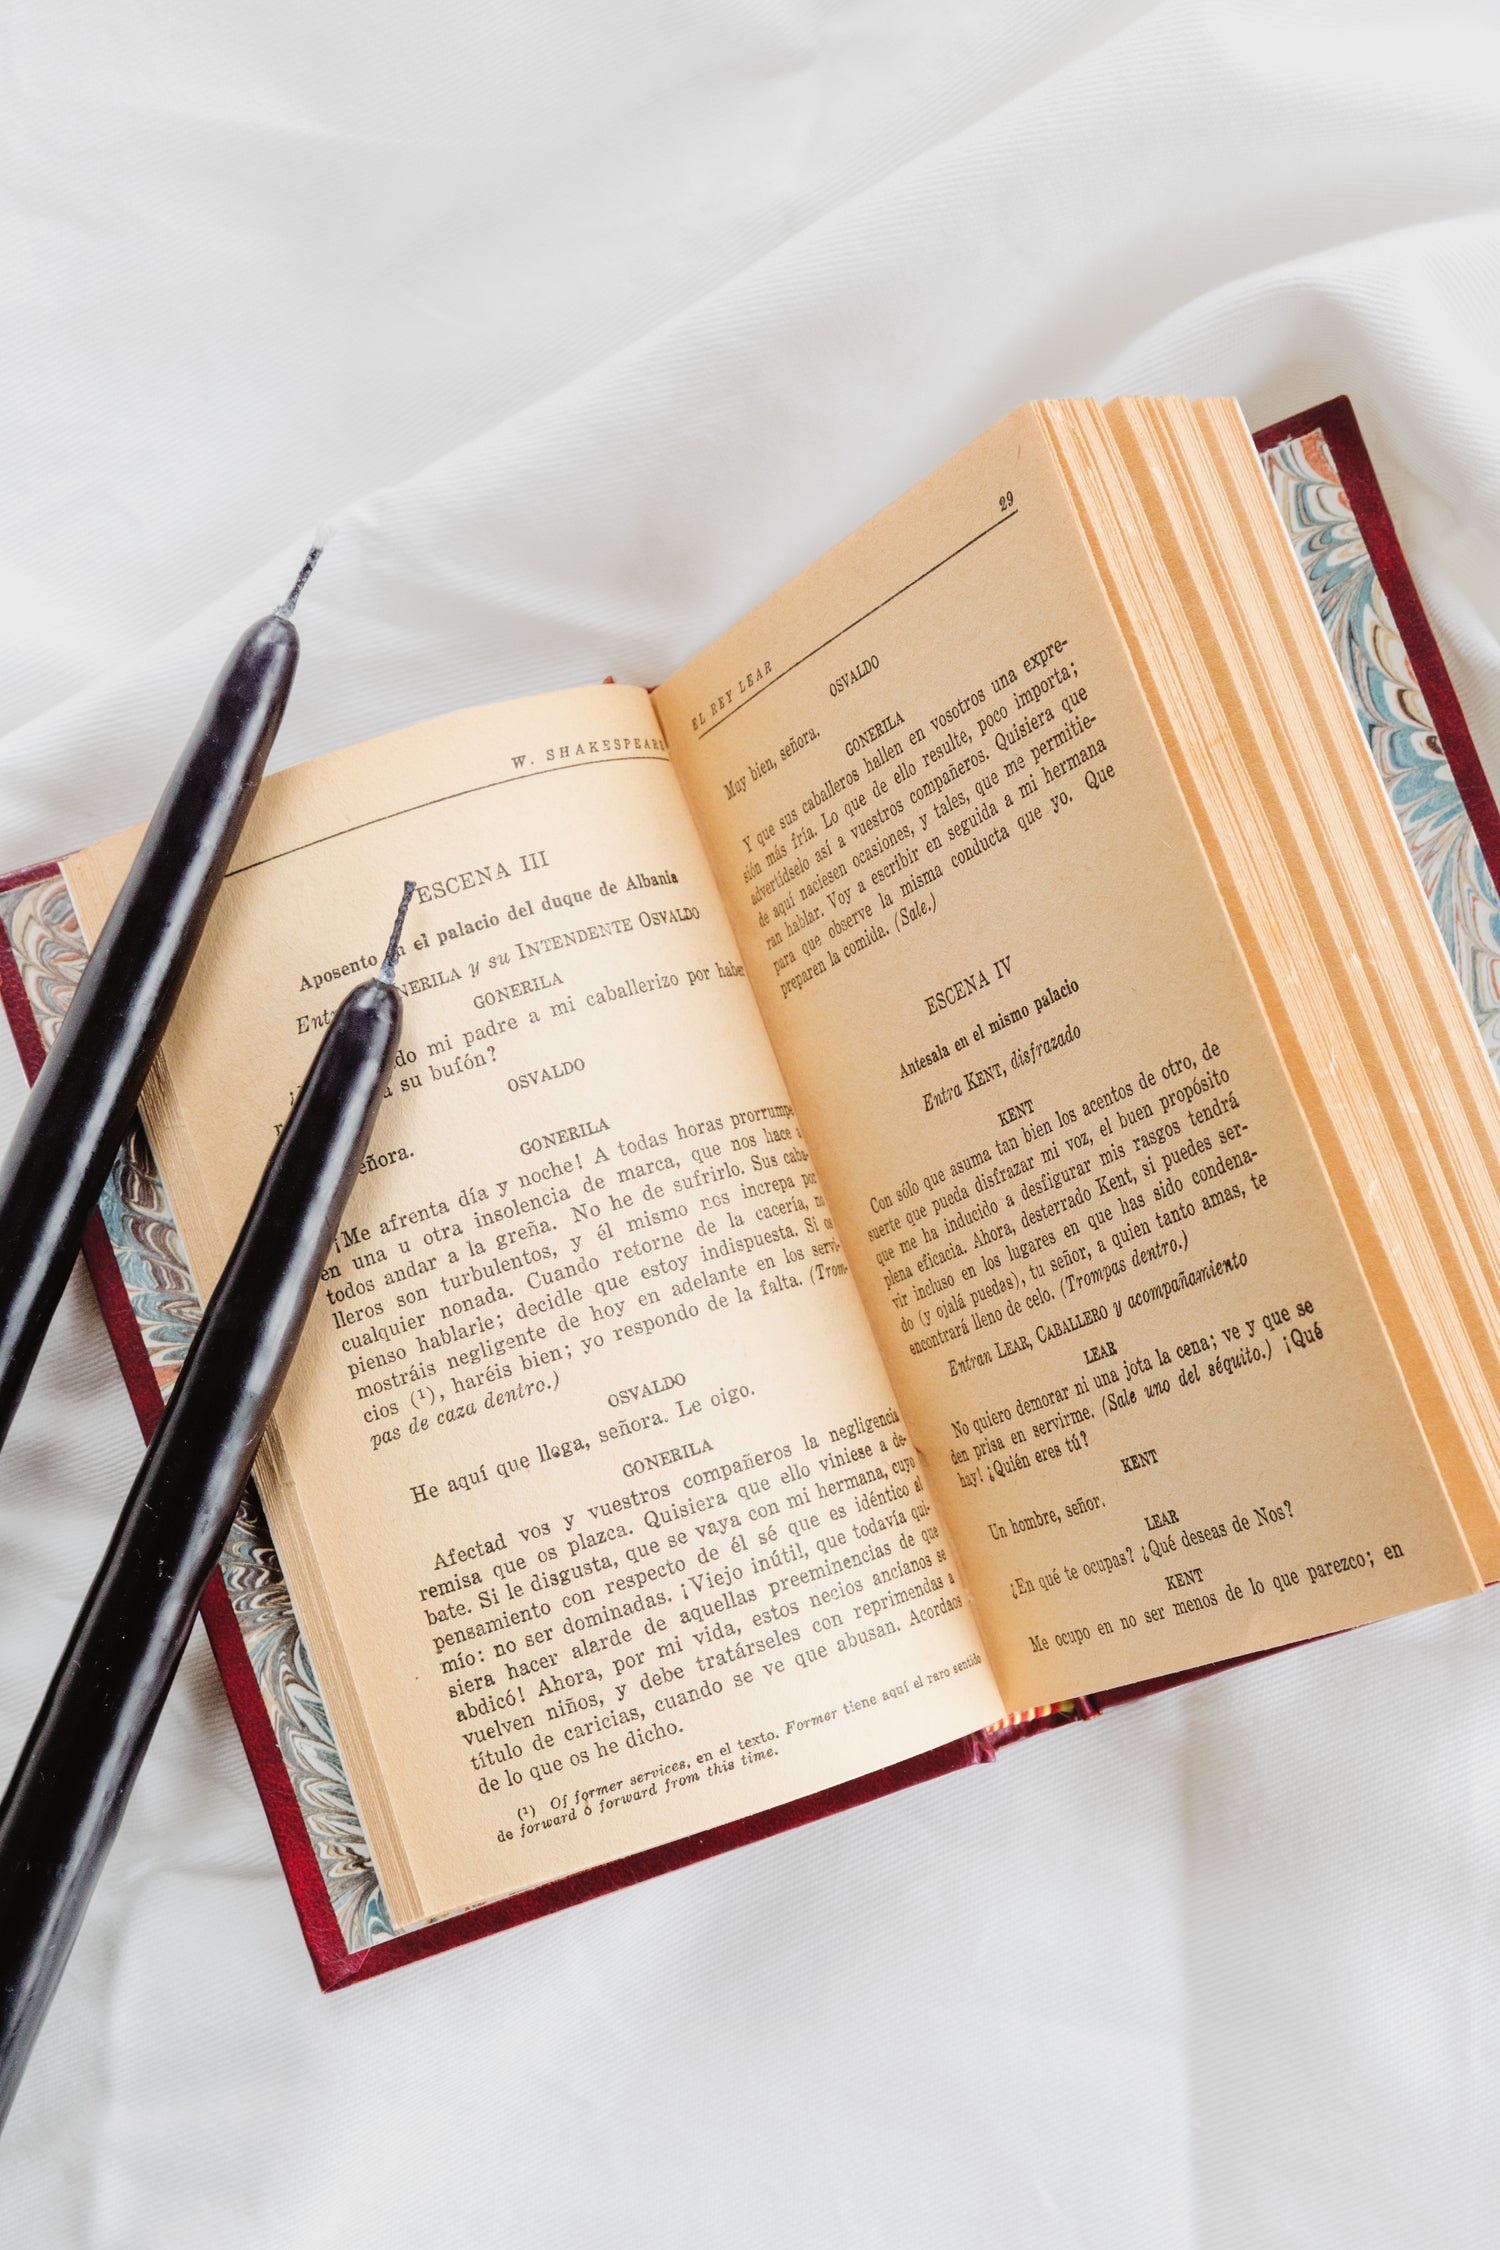 W. SHAKESPEARE
ESCENA III
Aposento en el palacio del duque de Albania
Entr NERILA y su INTENDENTE OSVALDO
GONERILA
do mi padre a mi caballerizo por haber
a su bufón?
OSVALDO
eñora.
GONERILA
¡Me afrenta día y noche! A todas horas prorrumpe
en una u otra insolencia de marca, que nos hace a
todos andar a la greña. No he de sufrirlo. Sus caba-
lleros son turbulentos, y él mismo nos increpa por
cualquier nonada. Cuando retorne de la cacería, no
pienso hablarle; decidle que estoy indispuesta. Si os
mostráis negligente de hoy en adelante en los servi-
cios (¹), haréis bien; yo respondo de la falta. (Trom-
pas de caza dentro.)
OSVALDO
He aquí que llega, señora. Le oigo.
GONERILA
Afectad vos y vuestros compañeros la negligencia
remisa que os plazca. Quisiera que ello viniese a de-
bate. Si le disgusta, que se vaya con mi hermana, cuyo
pensamiento con respecto de él sé que es idéntico al
mío: no ser dominadas. ¡Viejo inútil, que todavía qui-
siera hacer alarde de aquellas preeminencias de que
abdicó! Ahora, por mi vida, estos necios ancianos se
vuelven niños, y debe tratárseles con reprimendas a
título de caricias, cuando se ve que abusan. Acordaos
de lo que os he dicho.
(¹) Of former services, en el texto. Former tiene aquí el raro sentido
de forward o forward from this time.
EL REY LEAR 29
OSVALDO
Muy bien, señora.
GONERILA
Y que sus caballeros hallen en vosotros una expre-
sión más fría. Lo que de ello resulte, poco importa;
advertídselo así a vuestros compañeros. Quisiera que
de aquí naciesen ocasiones, y tales, que me permitie-
ran hablar. Voy a escribir en seguida a mi hermana
para que observe la misma conducta que yo. Que
preparen la comida. (Sale.)
ESCENA IV
Antesala en el mismo palacio
Entra KENT, disfrazado
KENT
Con sólo que asuma tan bien los acentos de otro, de
suerte que pueda disfrazar mi voz, el buen propósito
que me ha inducido a desfigurar mis rasgos tendrá
plena eficacia. Ahora, desterrado Kent, si puedes ser-
vir incluso en los lugares en que has sido condena-
do (y ojalá puedas), tu señor, a quien tanto amas, te
encontrará lleno de celo. (Trompas dentro.)
Entran LEAR, CABALLERO y acompañamiento
LEAR
No quiero demorar ni una jota la cena; ve y que se
den prisa en servirme. (Sale uno del séquito.) ¡Qué
hay! ¿Quién eres tú?
KENT
Un hombre, señor.
LEAR
¿En qué te ocupas? ¿Qué deseas de Nos?
KENT
Me ocupo en no ser menos de lo que parezco; en